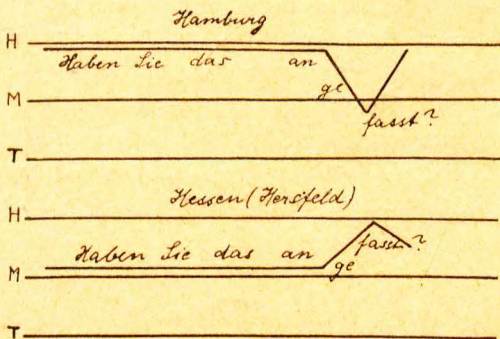 Hamburg
H
Haben Sie das an
ge
M
fasst?
T
Hessen (Hersfeld)
H
fasst?
Haben Sie das an
ge
M
T